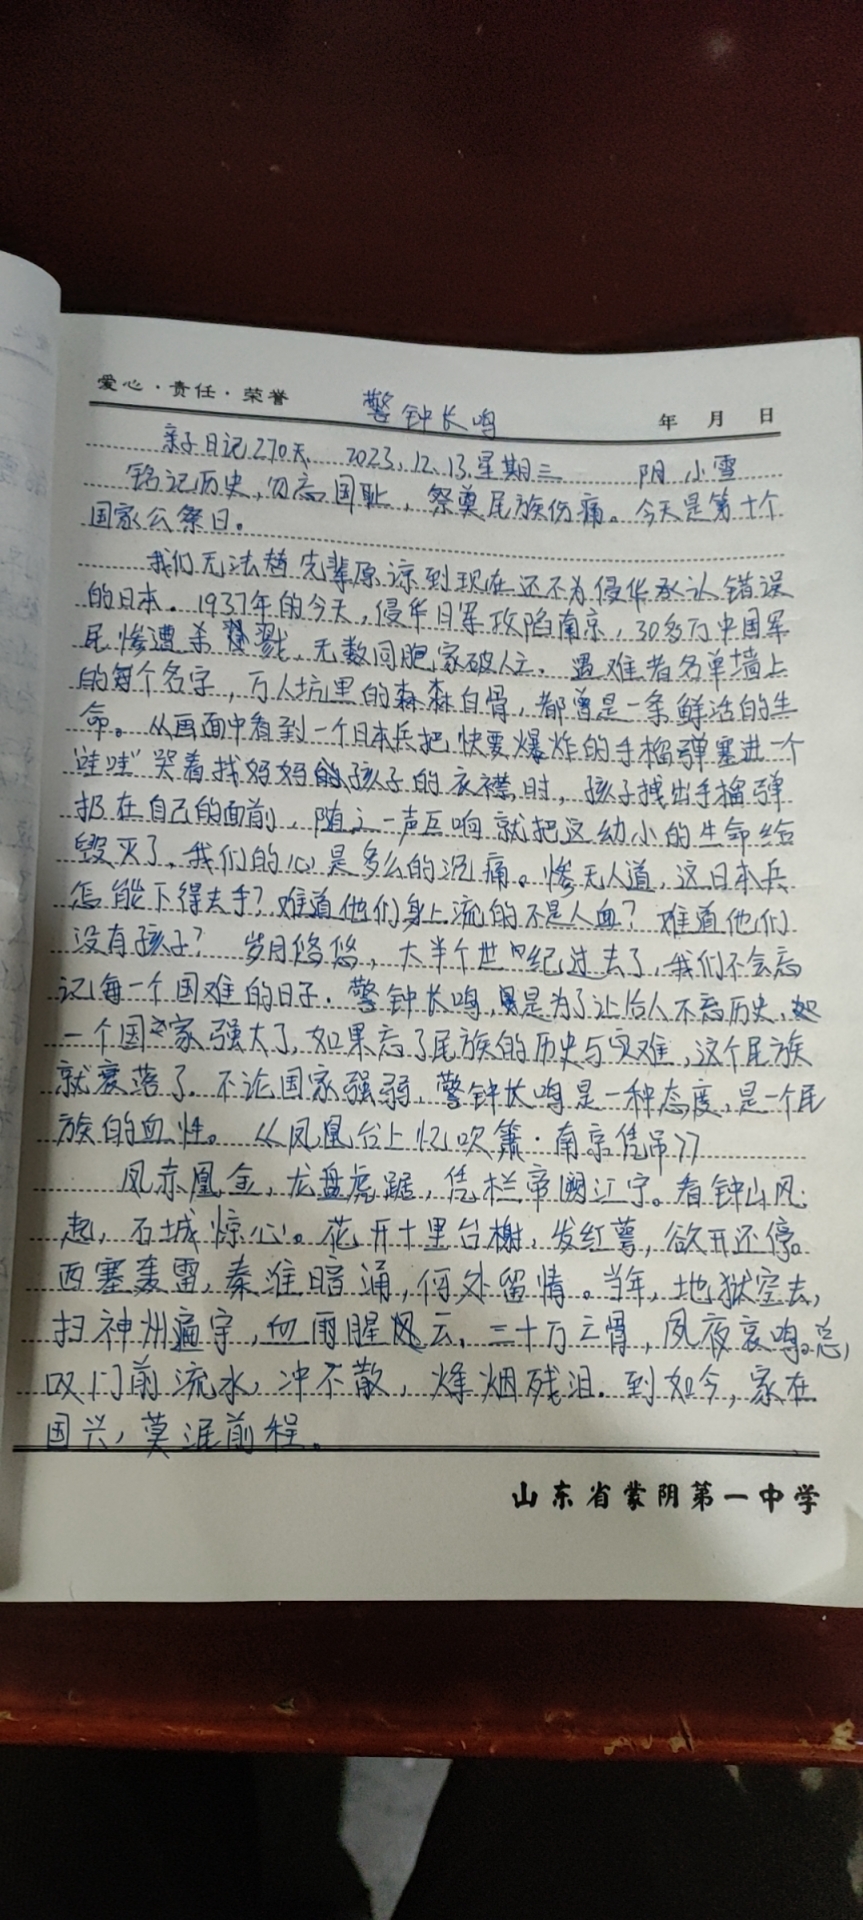 爱心·责任·荣誉
警钟长鸣
年 月 日
亲子日记270天 2023.12.13.星期三 阴 小雪
铭记历史,勿忘国耻,祭奠民族伤痛。今天是第十个
国家公祭日。
我们无法替先辈原谅到现在还不为侵华承认错误
的日本。1937年的今天,侵华日军攻陷南京,30多万中国军
民惨遭杀戮,无数同胞家破人亡。遇难者名单墙上
的每个名字,万人坑里的森森白骨,都曾是一条鲜活的生
命。从画面中看到一个日本兵把快要爆炸的手榴弹塞进一个
"哇哇"哭着找妈妈的孩子的衣襟时,孩子找出手榴弹
扔在自己的面前,随之一声巨响就把这幼小的生命给
毁灭了,我们的心是多么的沉痛。惨无人道,这日本兵
怎能下得去手?难道他们身上流的不是人血?难道他们
没有孩子? 岁月悠悠,大半个世纪过去了,我们不会忘
记每一个国难的日子.警钟长鸣,是为了让后人不忘历史,
一个国家强大了,如果忘了民族的历史与灾难,这个民族
就衰落了.不论国家强弱,警钟长鸣是一种态度,是一个民
族的血性。 《凤凰台上忆吹箫·南京凭吊》
凤赤凰金,龙盘虎踞,凭栏帝阙江宁。看钟山风
起,石城惊心。花开十里台榭,发红萼,欲开还停。
西塞轰雷,秦淮暗涌,何处留情。当年,地狱空去,
扫神州遍宇,血雨腥风云,三十万立骨,夙夜哀鸣。总
叹门前流水,冲不散,烽烟残泪.到如今,家在
国兴,莫泯前程。
山东省蒙阴第一中学